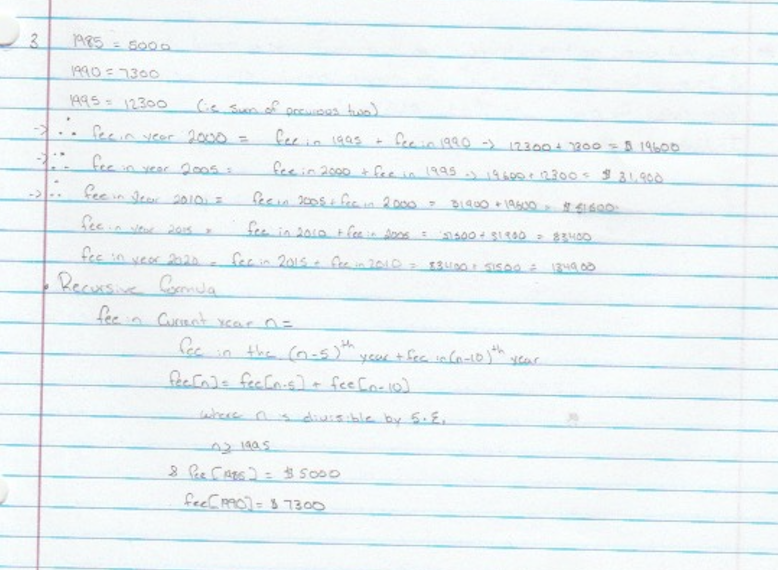 3 1985 = 5000
1990 = 7300
1995 = 12300 (i.e sum of previous two)
-> ∴ fee in year 2000 = fee in 1995 + fee in 1990 -> 12300 + 7300 = $ 19600
-> ∴ fee in year 2005 = fee in 2000 + fee in 1995 -> 19600 + 12300 = $ 31,900
-> ∴ fee in year 2010 = fee in 2005 + fee in 2000 = 31900 + 19600 = $ 51500
fee in year 2015 = fee in 2010 + fee in 2005 = 51500 + 31900 = 83400
fee in year 2020 = fee in 2015 + fee in 2010 = 83400 + 51500 = 134900
• Recursive formula
fee in current year n =
fee in the (n-5)th year + fee in (n-10)th year
fee[n] = fee[n-5] + fee[n-10]
where n is divisible by 5 &,
n ≥ 1995
& fee[1985] = $ 5000
fee[1990] = $ 7300